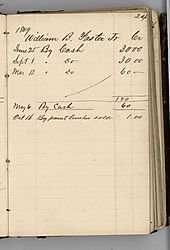 24
1809
William B. Foster Jr. Cr
June 25 By Cash 30 00
Sept 1 " Do 30.00
Mar 13 " Do 60 —
120
May 6 By Cash 60
Oct 16 By paint brushes sold 1.00